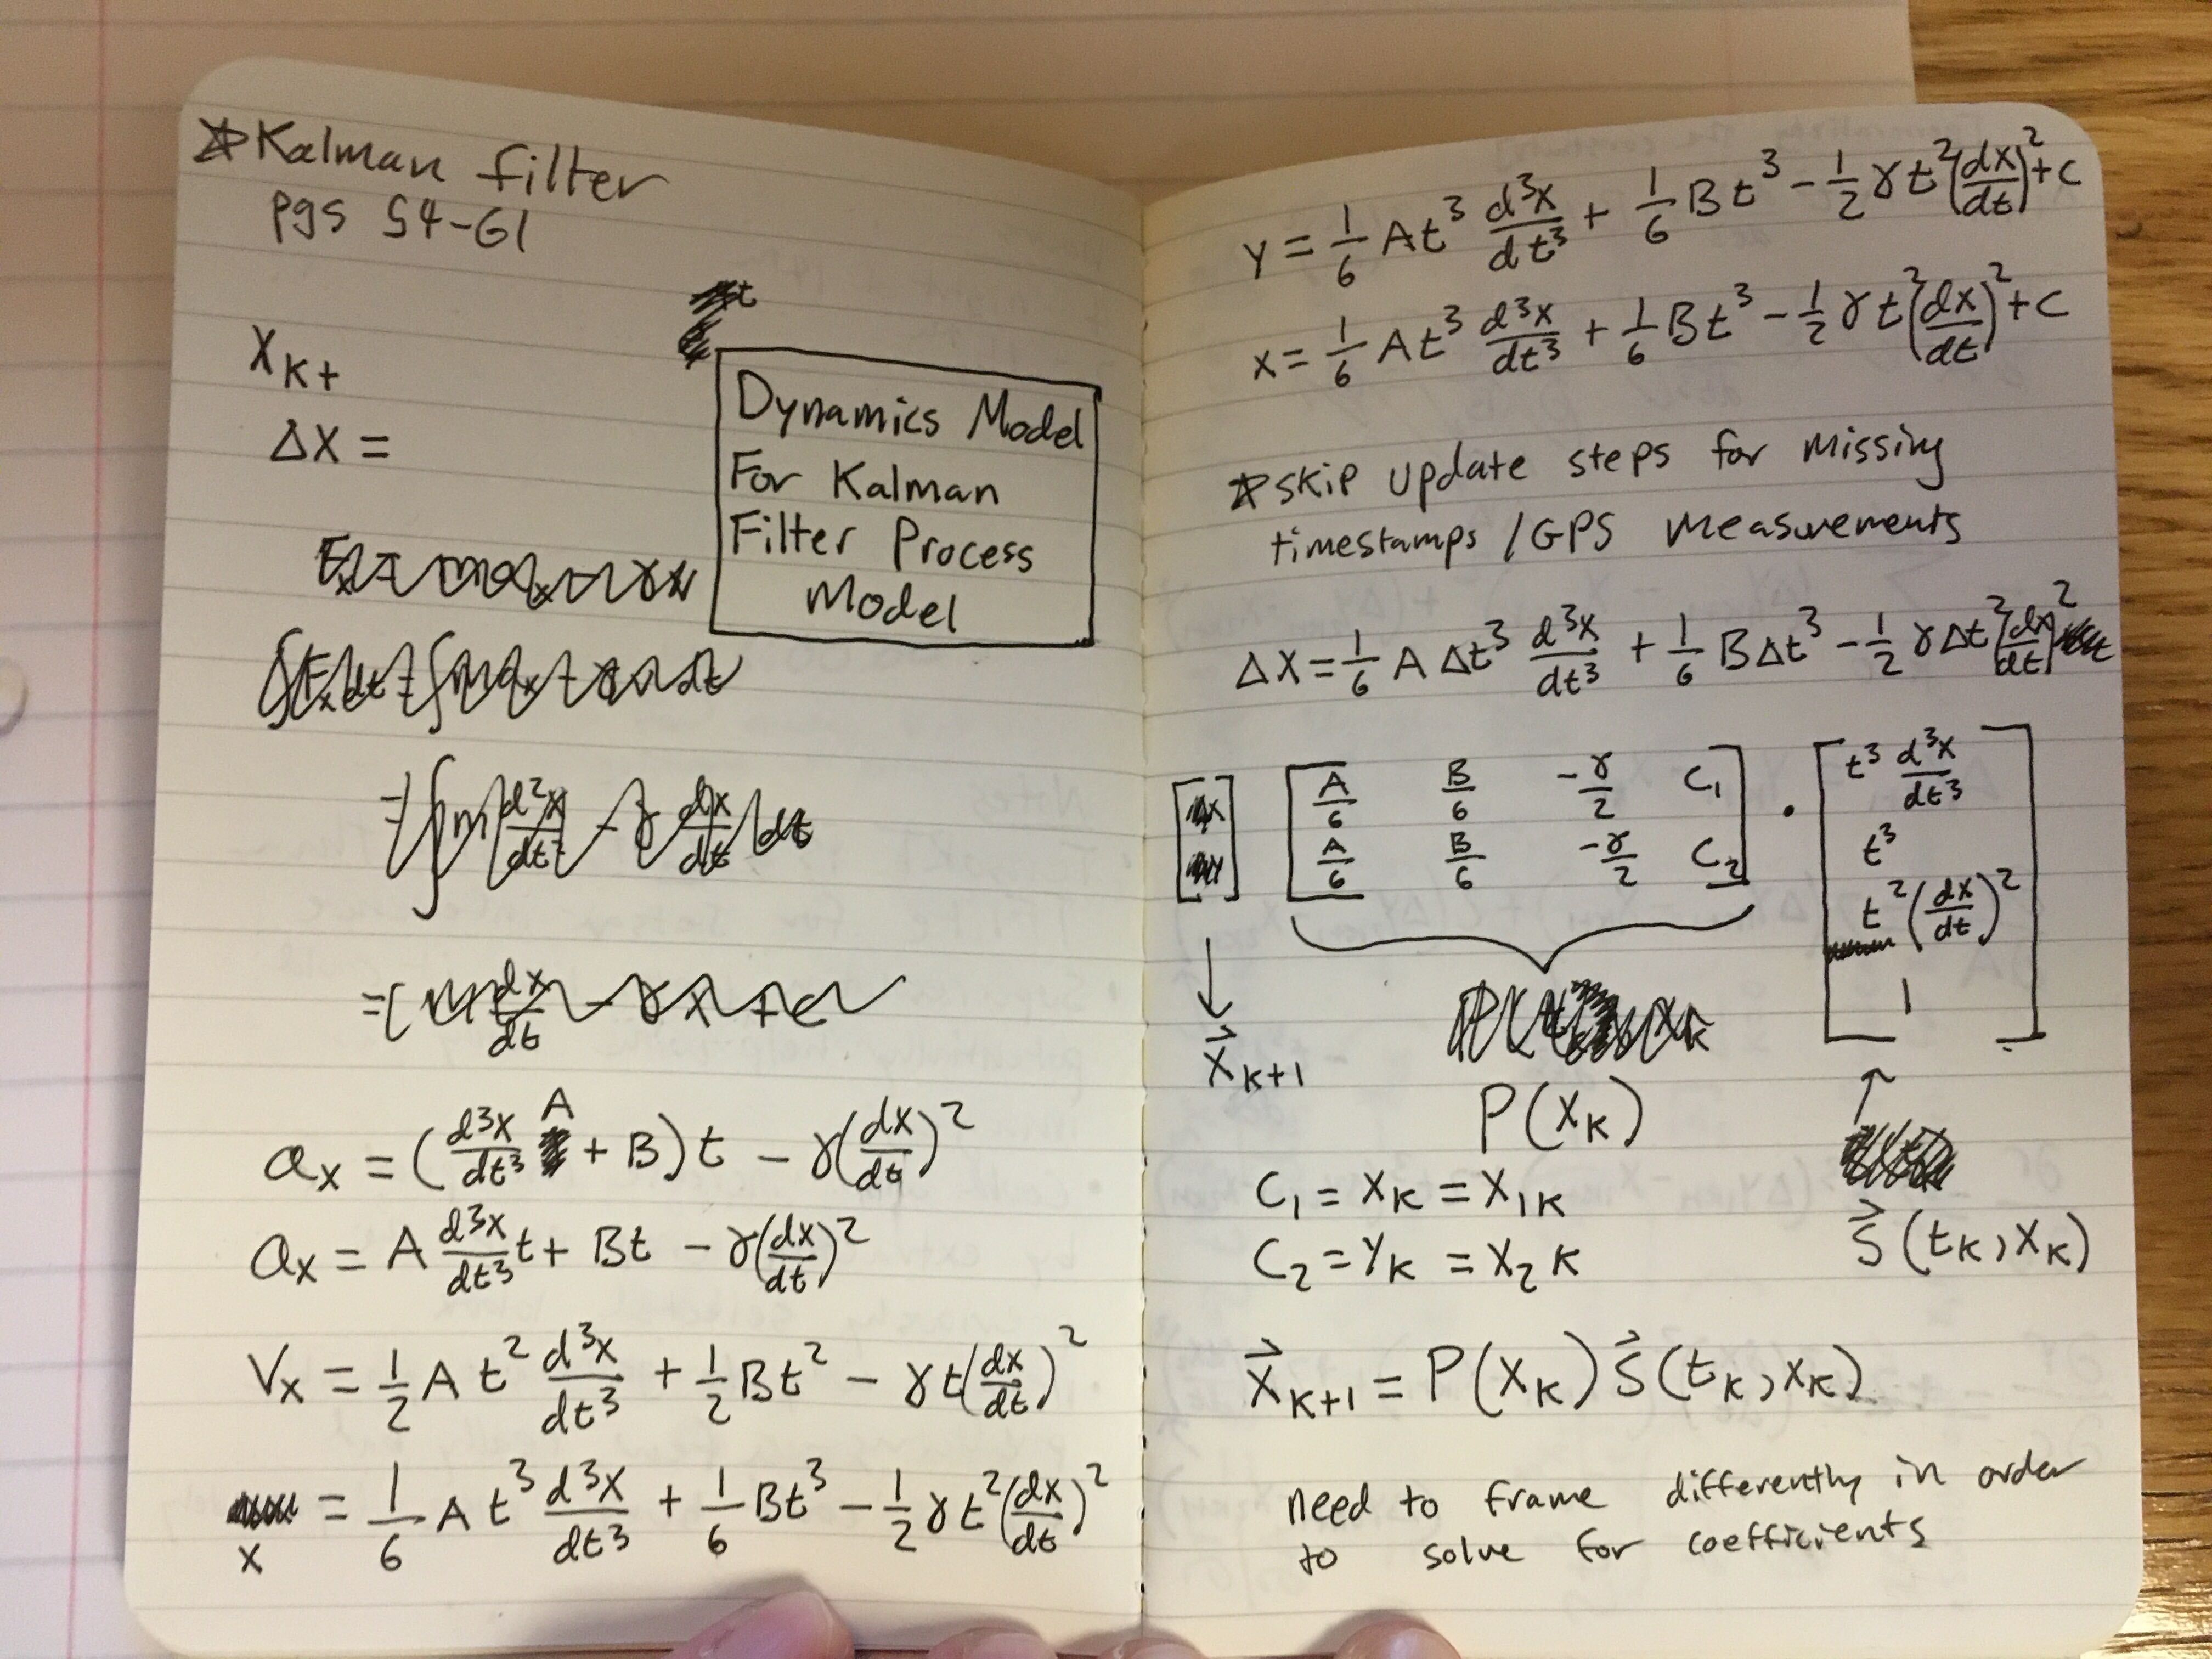 ☆Kalman filter
pgs 54-61
X_K+
ΔX =
Dynamics Model
For Kalman
Filter Process
Model
a_x = (d³x/dt³ A + B) t - γ(dx/dt)²
a_x = A d³x/dt³ t + Bt - γ(dx/dt)²
V_x = 1/2 A t² d³x/dt³ + 1/2 Bt² - γt(dx/dt)²
x = 1/6 A t³ d³x/dt³ + 1/6 Bt³ - 1/2 γt²(dx/dt)²
y = 1/6 At³ d³x/dt³ + 1/6 Bt³ - 1/2 γt²(dx/dt)² + C
x = 1/6 At³ d³x/dt³ + 1/6 Bt³ - 1/2 γt²(dx/dt)² + C
☆skip update steps for missing
timestamps / GPS measurements
ΔX = 1/6 A Δt³ d³x/dt³ + 1/6 BΔt³ - 1/2 γΔt²(dx/dt)²
[A/6 B/6 -γ/2 C₁
A/6 B/6 -γ/2 C₂]
·
[t³ d³x/dt³
t³
t²(dx/dt)²
1]
→X_K+1
P(X_K)
→S(t_K, X_K)
C₁ = X_K = X_1K
C₂ = Y_K = X_2 K
→X_K+1 = P(X_K) →S(t_K, X_K)
need to frame differently in order
to solve for coefficients